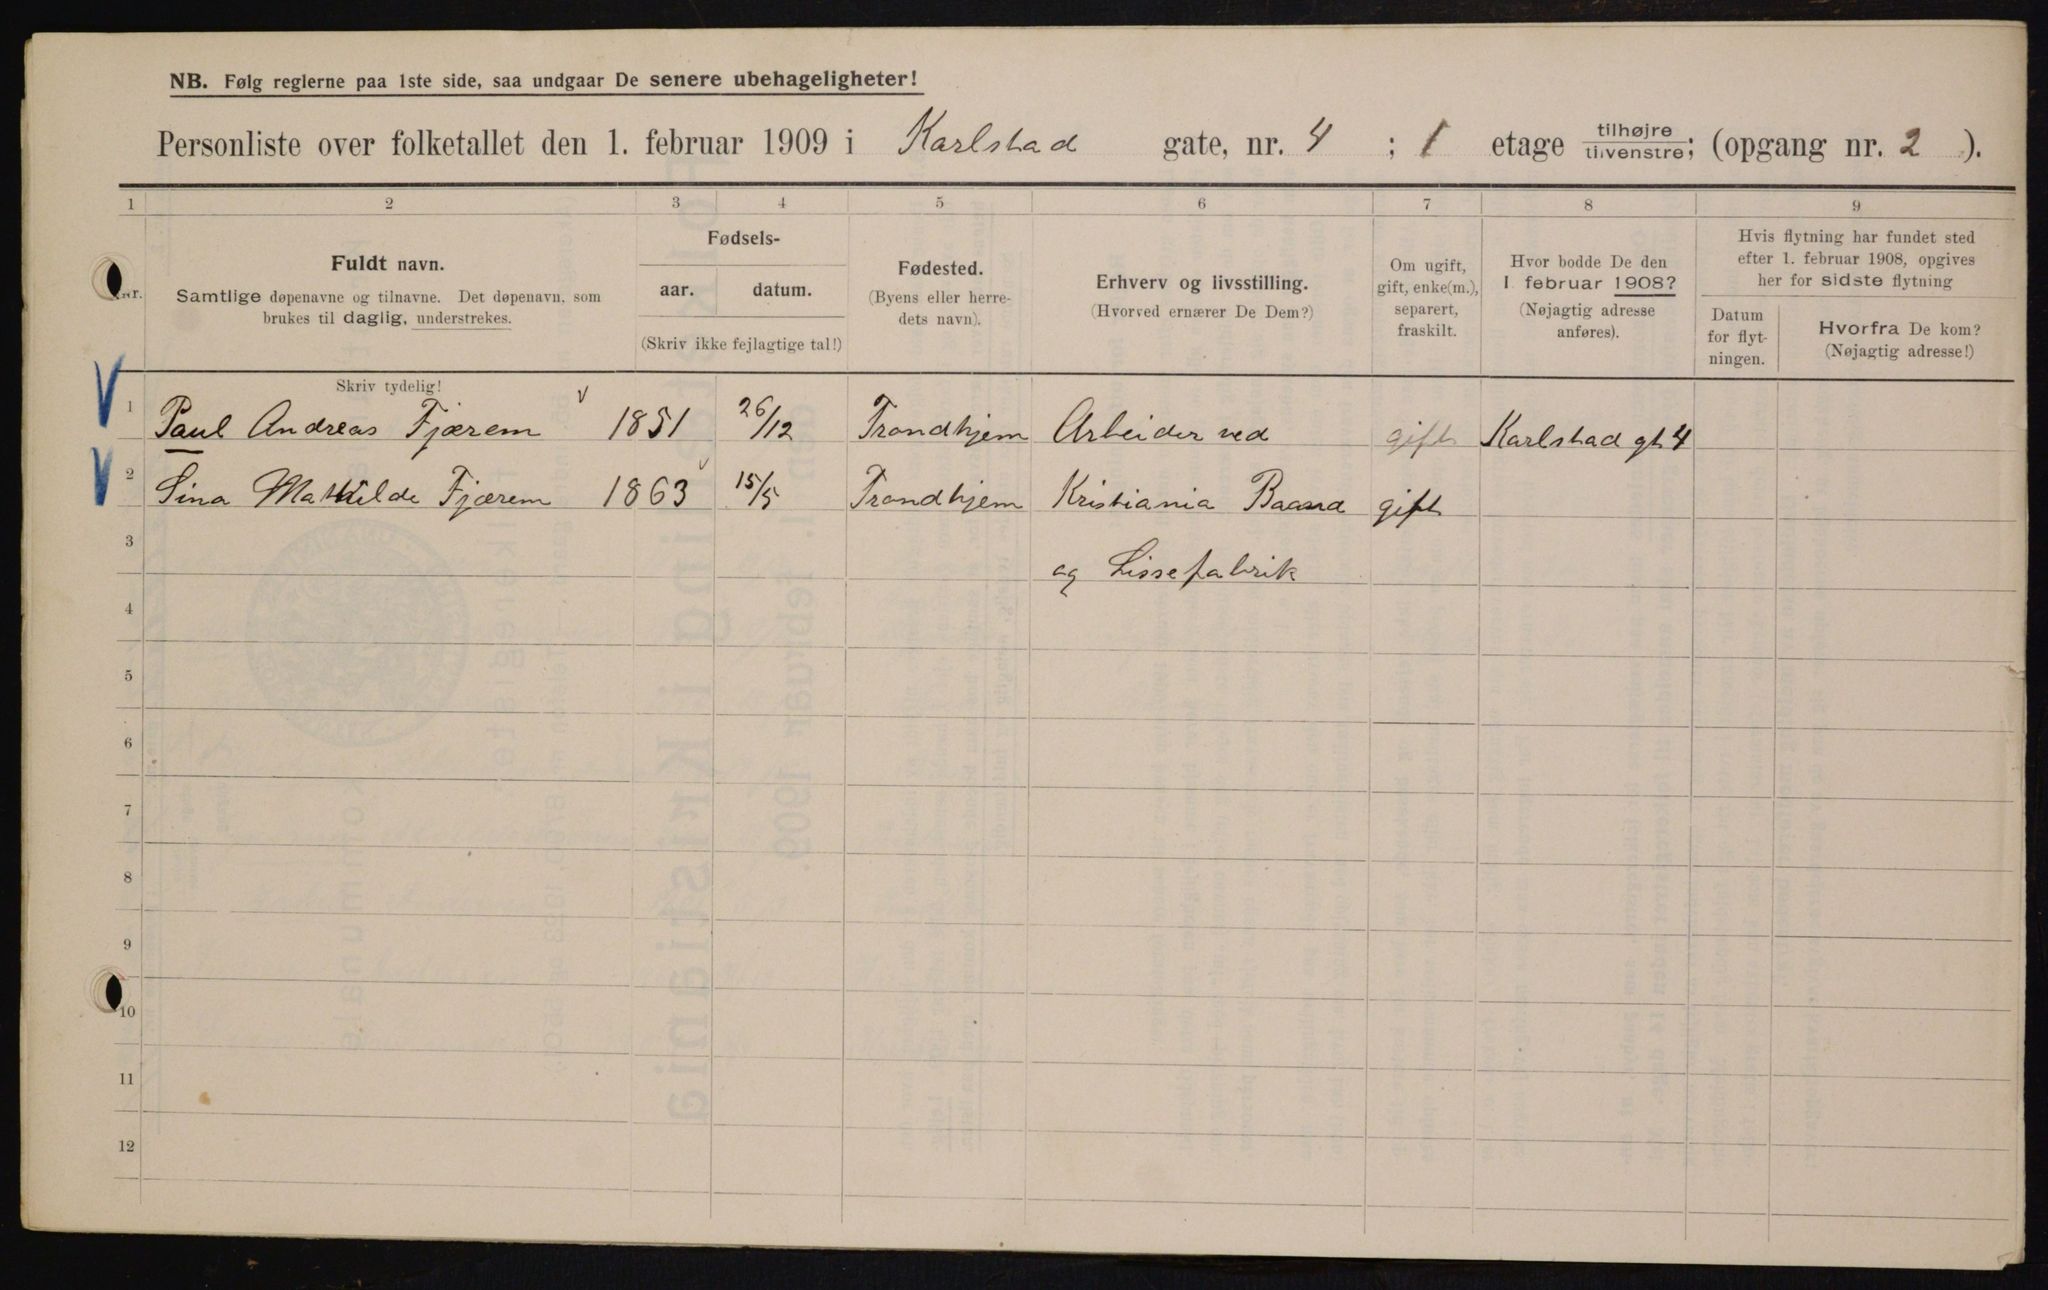 NB. Følg reglerne paa 1ste side, saa undgaar De senere ubehageligheter!
Personliste over folketallet den 1. februar 1909 i Karlstad gate, nr. 4 ; 1 etage tilhøjre/tilvenstre; (opgang nr. 2 ).
1 2 3 4 5 6 7 8 9
Nr.
Fuldt navn.
Samtlige døpenavne og tilnavne. Det døpenavn, som
brukes til daglig, understrekes.
Fødsels-
aar. datum.
(Skriv ikke fejlagtige tal!)
Fødested.
(Byens eller herre-
dets navn).
Erhverv og livsstilling.
(Hvorved ernærer De Dem?)
Om ugift,
gift, enke(m.),
separert,
fraskilt.
Hvor bodde De den
1. februar 1908?
(Nøjagtig adresse
anføres).
Hvis flytning har fundet sted
efter 1. februar 1908, opgives
her for sidste flytning
Datum
for flyt-
ningen.
Hvorfra De kom?
(Nøjagtig adresse!)
Skriv tydelig!
1 Paul Andreas Fjærem 1851 26/12 Trondhjem Arbeider ved gift Karlstad gt 4
2 Sina Mathilde Fjærem 1863 15/5 Trondhjem Kristiania Baand gift
3 og Lissefabrik
4
5
6
7
8
9
10
11
12